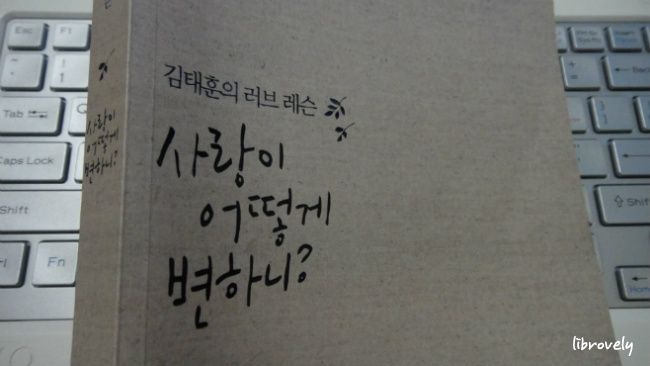 김태훈의 러브 레슨
사랑이
어떻게
변하니?
사랑이
어떻게
변하니?
Esc
F1
!
1
Tab
Q
Caps Lock
Shift
Fn
Shift
Home
librovely